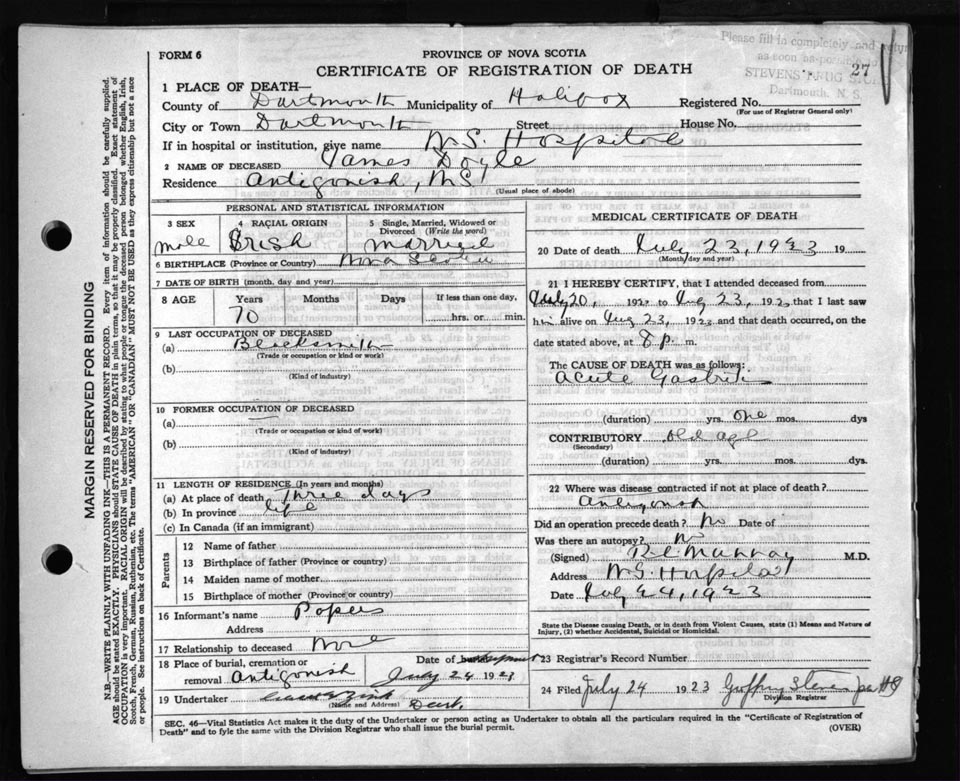 Please fill in completely and return
as soon as possible
STEVENS DRUG
Dartmouth, N. S.
27
FORM 6
PROVINCE OF NOVA SCOTIA
CERTIFICATE OF REGISTRATION OF DEATH
1 PLACE OF DEATH—
County of Dartmouth Municipality of Halifax Registered No.
(For use of Registrar General only)
City or Town Dartmouth Street House No.
If in hospital or institution, give name N.S. Hospital
2 NAME OF DECEASED James Doyle
Residence Antigonish, N.S.
(Usual place of abode)
PERSONAL AND STATISTICAL INFORMATION
3 SEX Male
4 RACIAL ORIGIN Irish
5 Single, Married, Widowed or Divorced (Write the word) Married
6 BIRTHPLACE (Province or Country) Nova Scotia
7 DATE OF BIRTH (month, day and year)
8 AGE Years Months Days If less than one day,
70 hrs. or min.
9 LAST OCCUPATION OF DECEASED
(a) Blacksmith
(Trade or occupation or kind or work)
(b)
(Kind of industry)
10 FORMER OCCUPATION OF DECEASED
(a) —
(Trade or occupation or kind of work)
(b)
(Kind of industry)
11 LENGTH OF RESIDENCE (In years and months)
(a) At place of death three days
(b) In province life
(c) In Canada (if an immigrant)
Parents
12 Name of father
13 Birthplace of father (Province or country)
14 Maiden name of mother
15 Birthplace of mother (Province or country)
16 Informant's name Papers
Address
17 Relationship to deceased None
18 Place of burial, cremation or
removal Antigonish Date of July 24 1923
19 Undertaker Dart.
(Name and Address)
MEDICAL CERTIFICATE OF DEATH
20 Date of death July 23, 1923 19
(Month day and year)
21 I HEREBY CERTIFY, that I attended deceased from
July 20, 1923 to July 23, 1923 that I last saw
him alive on July 23, 1923 and that death occurred, on
date stated above, at 8 p. m.
The CAUSE OF DEATH was as follows:
Acute Gastritis
(duration) yrs. one mos. dys
CONTRIBUTORY old age
(Secondary)
(duration) yrs. mos. dys.
22 Where was disease contracted if not at place of death?
Antigonish
Did an operation precede death? No Date of
Was there an autopsy? No
(Signed) Murray M.D.
Address N.S. Hospital
Date July 24, 1923
State the Disease causing Death, or in death from Violent Causes, state (1) Means and Nature of
Injury, (2) whether Accidental, Suicidal or Homicidal.
23 Registrar's Record Number
24 Filed July 24 1923
Division Registrar
SEC. 46—Vital Statistics Act makes it the duty of the Undertaker or person acting as Undertaker to obtain all the particulars required in the "Certificate of Registration of
Death" and to fyle the same with the Division Registrar who shall issue the burial permit. (OVER)
MARGIN RESERVED FOR BINDING
N.B.—WRITE PLAINLY WITH UNFADING INK—THIS IS A PERMANENT RECORD. Every item of information should be carefully supplied.
AGE should be stated EXACTLY. PHYSICIANS should STATE CAUSE OF DEATH in plain terms, so that it may be properly classified. Exact statement of
OCCUPATION is very important. RACIAL ORIGIN will be described by stating to what people or tongue the deceased person belonged whether English, Irish,
Scotch, French, German, Russian, Ruthenian, etc. The terms "AMERICAN" OR "CANADIAN" MUST NOT BE USED as they express citizenship but not a race
or people. See instructions on back of Certificate.